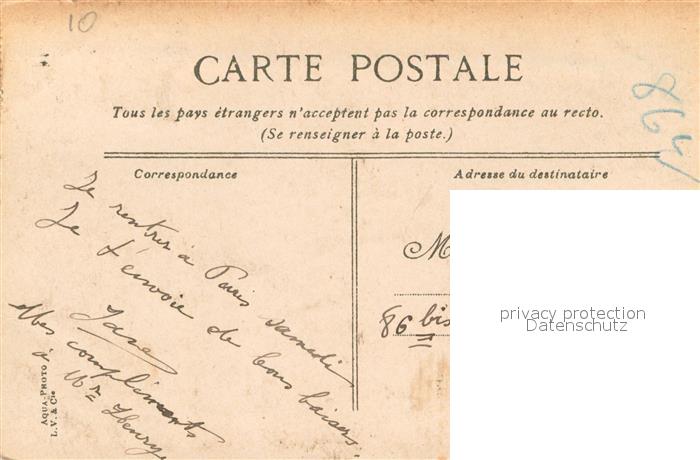 10
CARTE POSTALE
864
Tous les pays étrangers n'acceptent pas la correspondance au recto.
(Se renseigner à la poste.)
Correspondance
Adresse du destinataire
Je rentrer à Paris samedi
Je t'envoie de bons baisers.
Mes compliments
à Mr Henry
M
86 bis
privacy protection
Datenschutz
AQUA-PHOTO
L.V. & Cie